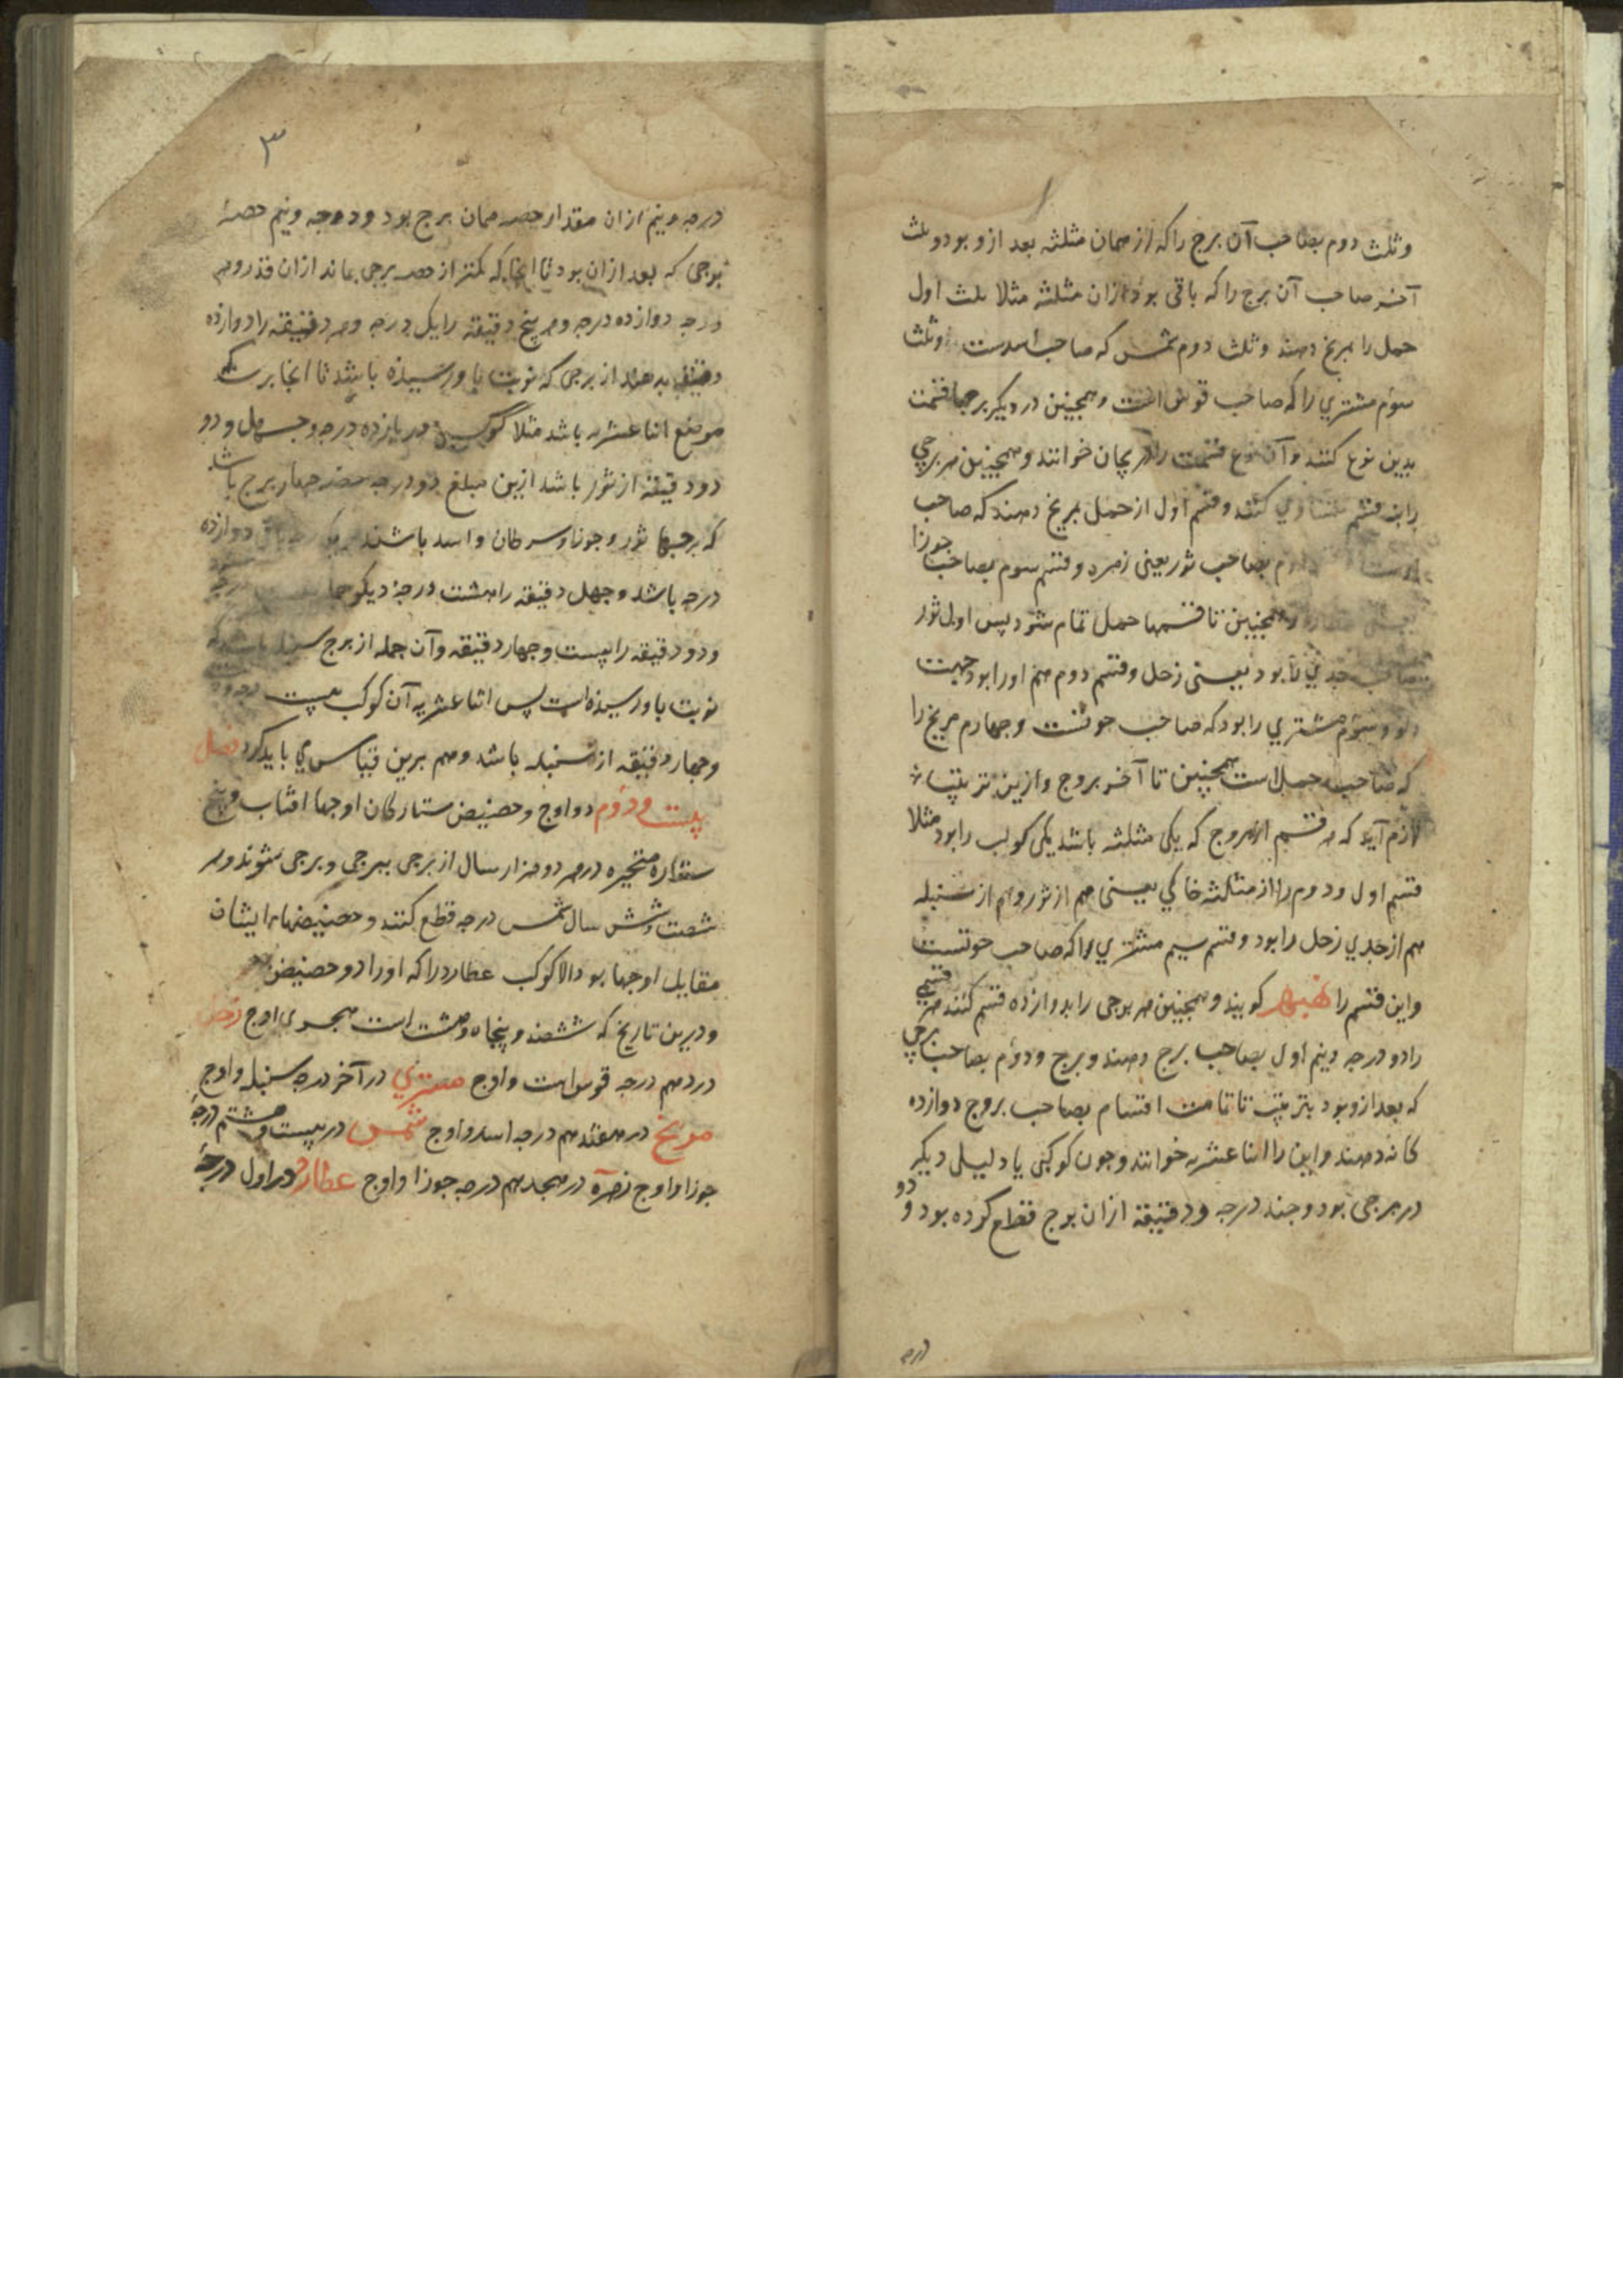 وثلث دوم بصاحب آن برج را که از همان مثلثه بعد ازو بود وثلث
آخر صاحب آن برج را که باقی بود ازان مثلثه مثلا ثلث اول
حمل را بمریخ دهند وثلث دوم شمس که صاحب اسدست وثلث
سوم مشتري را که صاحب قوس است و همچنین در دیکر برجها قسمت
بدین نوع کنند وآن نوع قسمت را دریجان خوانند و همچنین هر برجی
را نه قسم متساوي کنند وقسم اول از حمل بمریخ دهند که صاحب
اوست دوم بصاحب ثور یعنی زهره وقسم سوم بصاحب جوزا
یعنی عطارد و همچنین تا قسمها حمل تمام شود پس اول ثور
صاحب جدي را بود یعنی زحل وقسم دوم هم او را بود جهت
دلو وسوم مشتري را بود که صاحب حوتست وچهارم مریخ را
که صاحب حمل است همچنین تا آخر بروج وازین ترتیب
لازم آید که هر قسم از بروج که یکی مثلثه باشد یکی کوکب را بود مثلا
قسم اول ودوم را از مثلثه خاکي یعنی هم از ثور وهم از سنبله
هم از جدي زحل را بود وقسم سیم مشتري را که صاحب حوتست
واین قسم را نهبهر کویند و همچنین هر برجی را بدوازده قسم کنند هر قسمی
را دو درجه ونیم اول بصاحب برج دهند و دوم بصاحب برجی
که بعد ازو بود بترتیب تا تمامت اقسام بصاحب بروج دوازده
کانه دهند واین را اثنا عشریه خوانند وچون کوکبی یا دلیلی دیکر
در برجی بود وچند درجه ودقیقه ازان برج قطع کرده بود دو
و
درجه
۳
درجه ونیم ازان مقدار حصه همان برج بود ودو درجه ونیم حصهٔ
برجی که بعد ازان بود تا انجا که کمتر از حصه برجی بماند ازان قدر وهر
درجه دوازده درجه وهر پنج دقیقه را یک درجه وهر دقیقه را دوازده
دقیقه بدهند از برجی که نوبت باو رسیده باشد تا انجا برسد که
موضع اثنا عشریه باشد مثلا کوکبی در یازده درجه وچهل ودو
دو دقیقه از ثور باشد ازین مبلغ ده درجه حصه چهار برج باشد
که برجها ثور وجوزا وسرطان واسد باشند دوازده
درجه باشد وچهل دقیقه را هشت درجهٔ دیکر
ودو دقیقه را بیست وچهار دقیقه وآن جمله از برج سنبله باشد که
نوبت باو رسیده است پس اثنا عشریه آن کوکب بیست درجه
وچهار دقیقه از سنبله باشد وهم برین قیاس می باید کرد فصل
بیست ودوم در اوج وحضیض ستارکان اوجها افتاب وپنج
ستاره متحیره در هر دو هزار سال از برجی ببرجی شوند ودر
شصت وشش سال شمسی درجه قطع کنند وحضیضهاء ایشان
مقابل اوجها بود الا کوکب عطارد را که او را دو حضیض
ودرین تاریخ که ششصد وپنجاه وهشت است هجری اوج زحل
در دهم درجه قوس است واوج مشتري در آخر درجه سنبله واوج
مریخ در هفدهم درجه اسد واوج شمس در بیست وهشتم درجهٔ
جوزا واوج زهره در هجدهم درجه جوزا واوج عطارد در اول درجهٔ